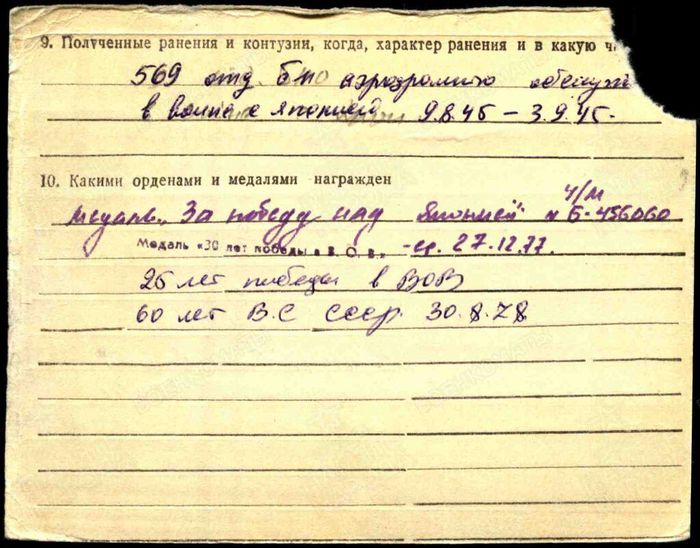 9. Полученные ранения и контузии, когда, характер ранения и в какую ч
569 отд. бат аэродромного обслуж
в войне с Японией 9.8.45 – 3.9.45.
10. Какими орденами и медалями награжден
ч/м
медаль „За победу над Японией" № Б-456060
Медаль «30 лет победы в В. О. В.» - 27.12.77.
25 лет победы в ВОВ
60 лет В.С СССР. 30.8.78.